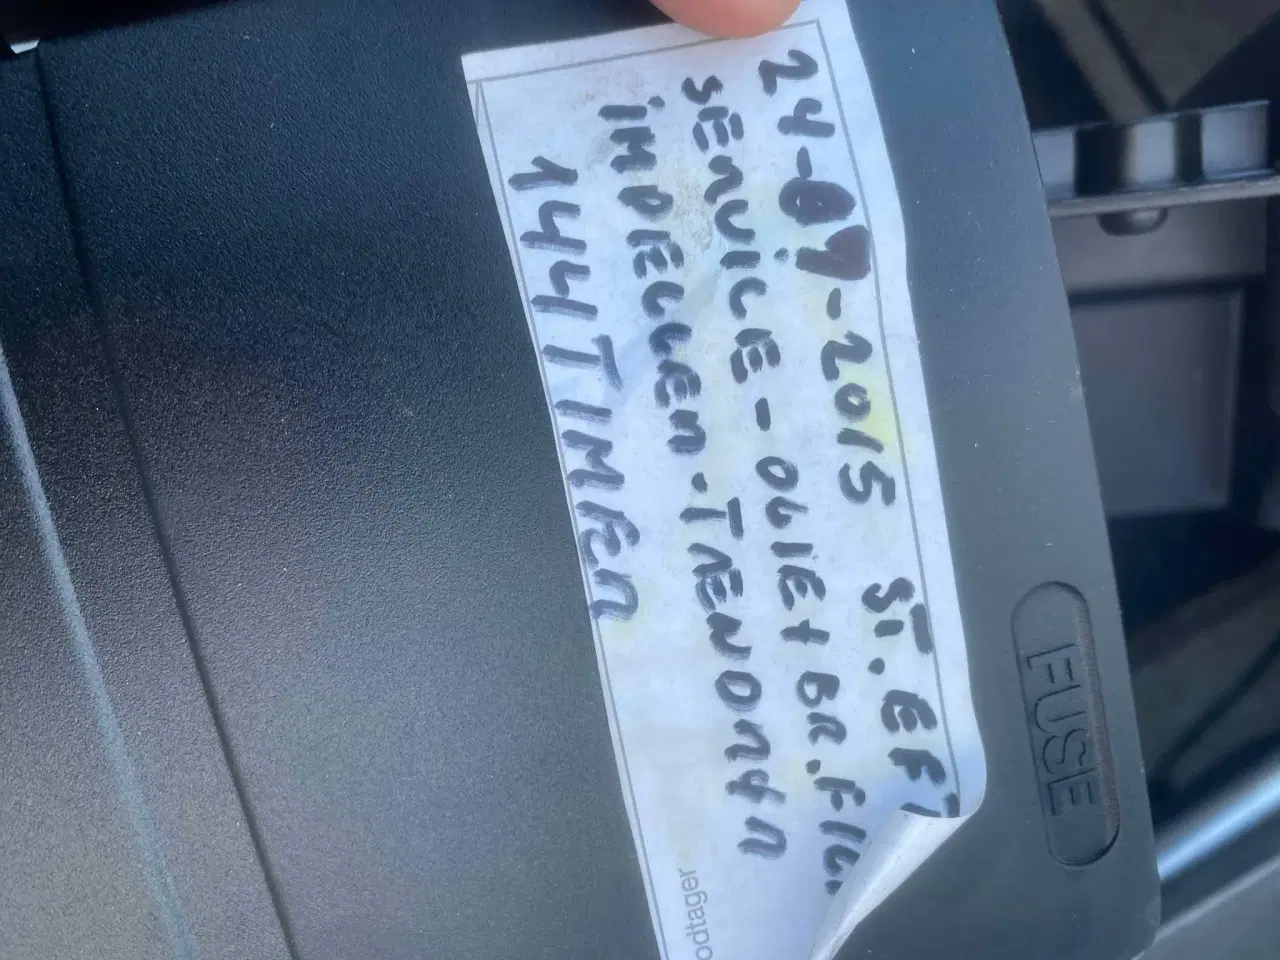 24-09-2015 ST. EFT
SERVICE - OLIE + BR. FIL.
IMPELLER. TÆNDRØR
144 TIMER
odtager
FUSE